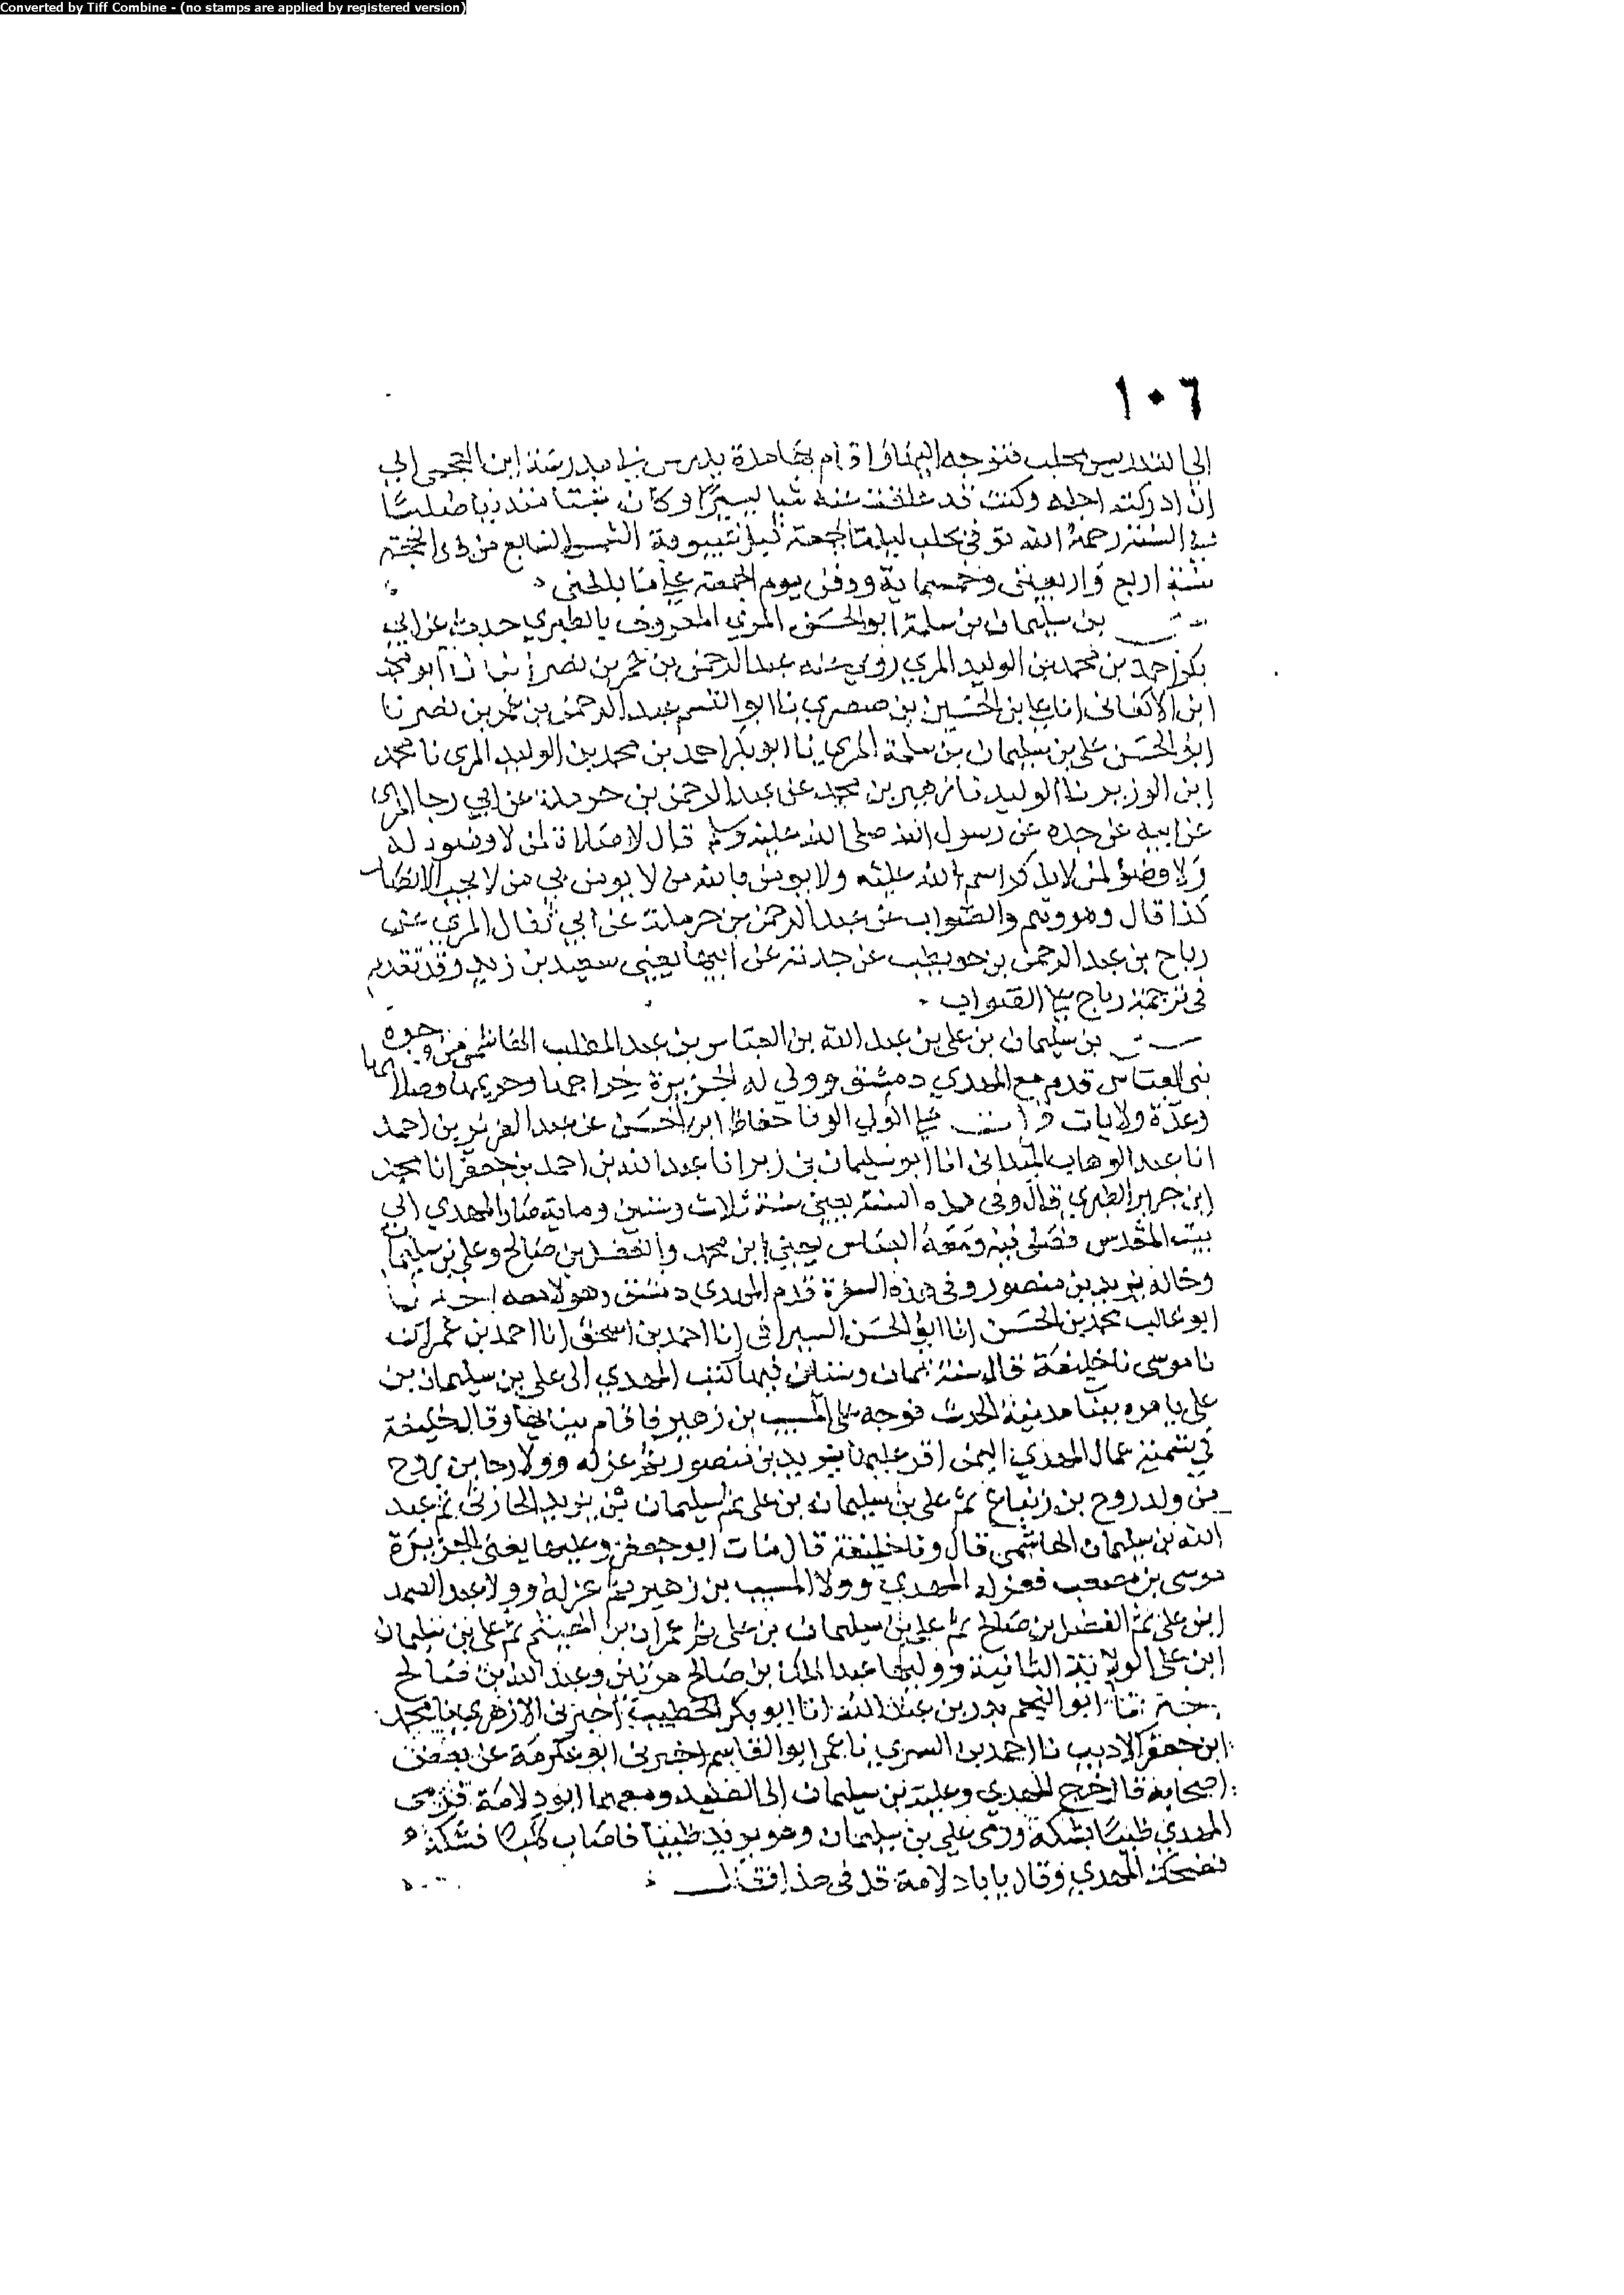 Converted by Tiff Combine - (no stamps are applied by registered version)
١٠٦
الى التدريس بحلب فتوجه اليها واقام بها مدة يدرس بها بمدرسة ابن العجمي الى
ان ادركه اجله وكنت قد علقت عنه شيا يسيرا وكان ثبتا متدينا صلبا
في السنة رحمه الله توفي بحلب ليلة الجمعة السابع من ذي الحجة
سنة اربع واربعين وخمسماية ودفن يوم الجمعة
بن سليمان بن سلمة ابو الحسن المري المعروف بالطبري حدث عن ابي
بكر احمد بن محمد بن الوليد المري روى عنه عبد الرحمن بن عمر بن نصر انبانا ابو محمد
ابن الاكفاني انا علي بن الحسين بن صصري نا ابو القسم عبد الرحمن بن عمر بن نصر نا
ابو الحسن علي بن سليمان بن سلمة المري نا ابو بكر احمد بن محمد بن الوليد المري نا محمد
ابن الوزير نا الوليد نا زهير بن محمد عن عبد الرحمن بن حرملة عن ابي رجا المري
عن ابيه عن جده عن رسول الله صلى الله عليه وسلم قال لا صلاة لمن لا وضوء له
ولا وضؤ لمن لا يذكر اسم الله عليه ولا يومن بالله من لا يومن بي من لا يحب الانصار
كذا قال وهو وهم والصواب عن عبد الرحمن بن حرملة عن ابي ثفال المري عن
رباح بن عبد الرحمن بن حويطب عن جدته عن ابيها يعني سعيد بن زيد وقد تقدم
في ترجمة رباح على الصواب
بن سليمان بن علي بن عبد الله بن العباس بن عبد المطلب الهاشمي من وجوه
بني العباس قدم مع المهدي دمشق وولي له الجزيرة خراجها وحربها وصلاتها
وعدة ولايات قرات على ابي الوفا حفاظ ابن الحسن عن عبد العزيز بن احمد
انا عبد الوهاب الميداني انا ابو سليمان بن زبر انا عبد الله بن احمد بن جعفر انا محمد
ابن جرير الطبري قال وفي هذه السنة يعني سنة ثلاث وستين وماية صار المهدي الى
بيت المقدس فصلى فيه ومعه العباس يعني ابن محمد والفضل بن صالح وعلي بن سليمان
وخاله يزيد بن منصور وفي هذه السفرة قدم المهدي دمشق وهولا معه اخبرنا
ابو غالب محمد بن الحسن انا ابو الحسن السيرافي انا احمد بن اسحق انا احمد بن عمران
نا موسى نا خليفة قال سنة ثمان وستين فيها كتب المهدي الى علي بن سليمان بن
علي يامره ببنا مدينة الحدث فوجه علي المسيب بن زهير فاقام ببنايها وقال خليفة
في تسمية عمال المهدي اليمن اقر عليها يزيد بن منصور ثم عزله وولا رجا بن روح
من ولد روح بن زنباع ثم علي بن سليمان بن علي ثم سليمان بن يزيد الحارثي ثم عبد
الله بن سليمان الهاشمي قال ونا خليفة قال مات ابو جعفر وعليها يعني الجزيرة
موسى بن مصعب فعزله المهدي وولا المسيب بن زهير ثم عزله وولا عبد الصمد
ابن علي ثم الفضل بن صالح ثم علي بن سليمان بن علي ثم عمران بن الهيثم ثم علي بن سليمان
ابن علي الولاية الثانية ووليها عبد الملك بن صالح مرتين وعبد الله بن صالح
ابو النجم بدر بن عبد الله انا ابو بكر الخطيب اخبرني الازهري نا محمد
ابن جعفر الاديب نا احمد بن السري نا عمي ابو القاسم اخبرني ابو عكرمة عن بعض
اصحابه قال خرج المهدي وعلي بن سليمان الى الصيد ومعهما ابو دلامة فرمى
المهدي ظبيا بشكة ورمى علي بن سليمان وهو يريد ظبيا فاصاب كلبا فشكه
فضحك المهدي وقال يابا دلامة قل في هذا فقال